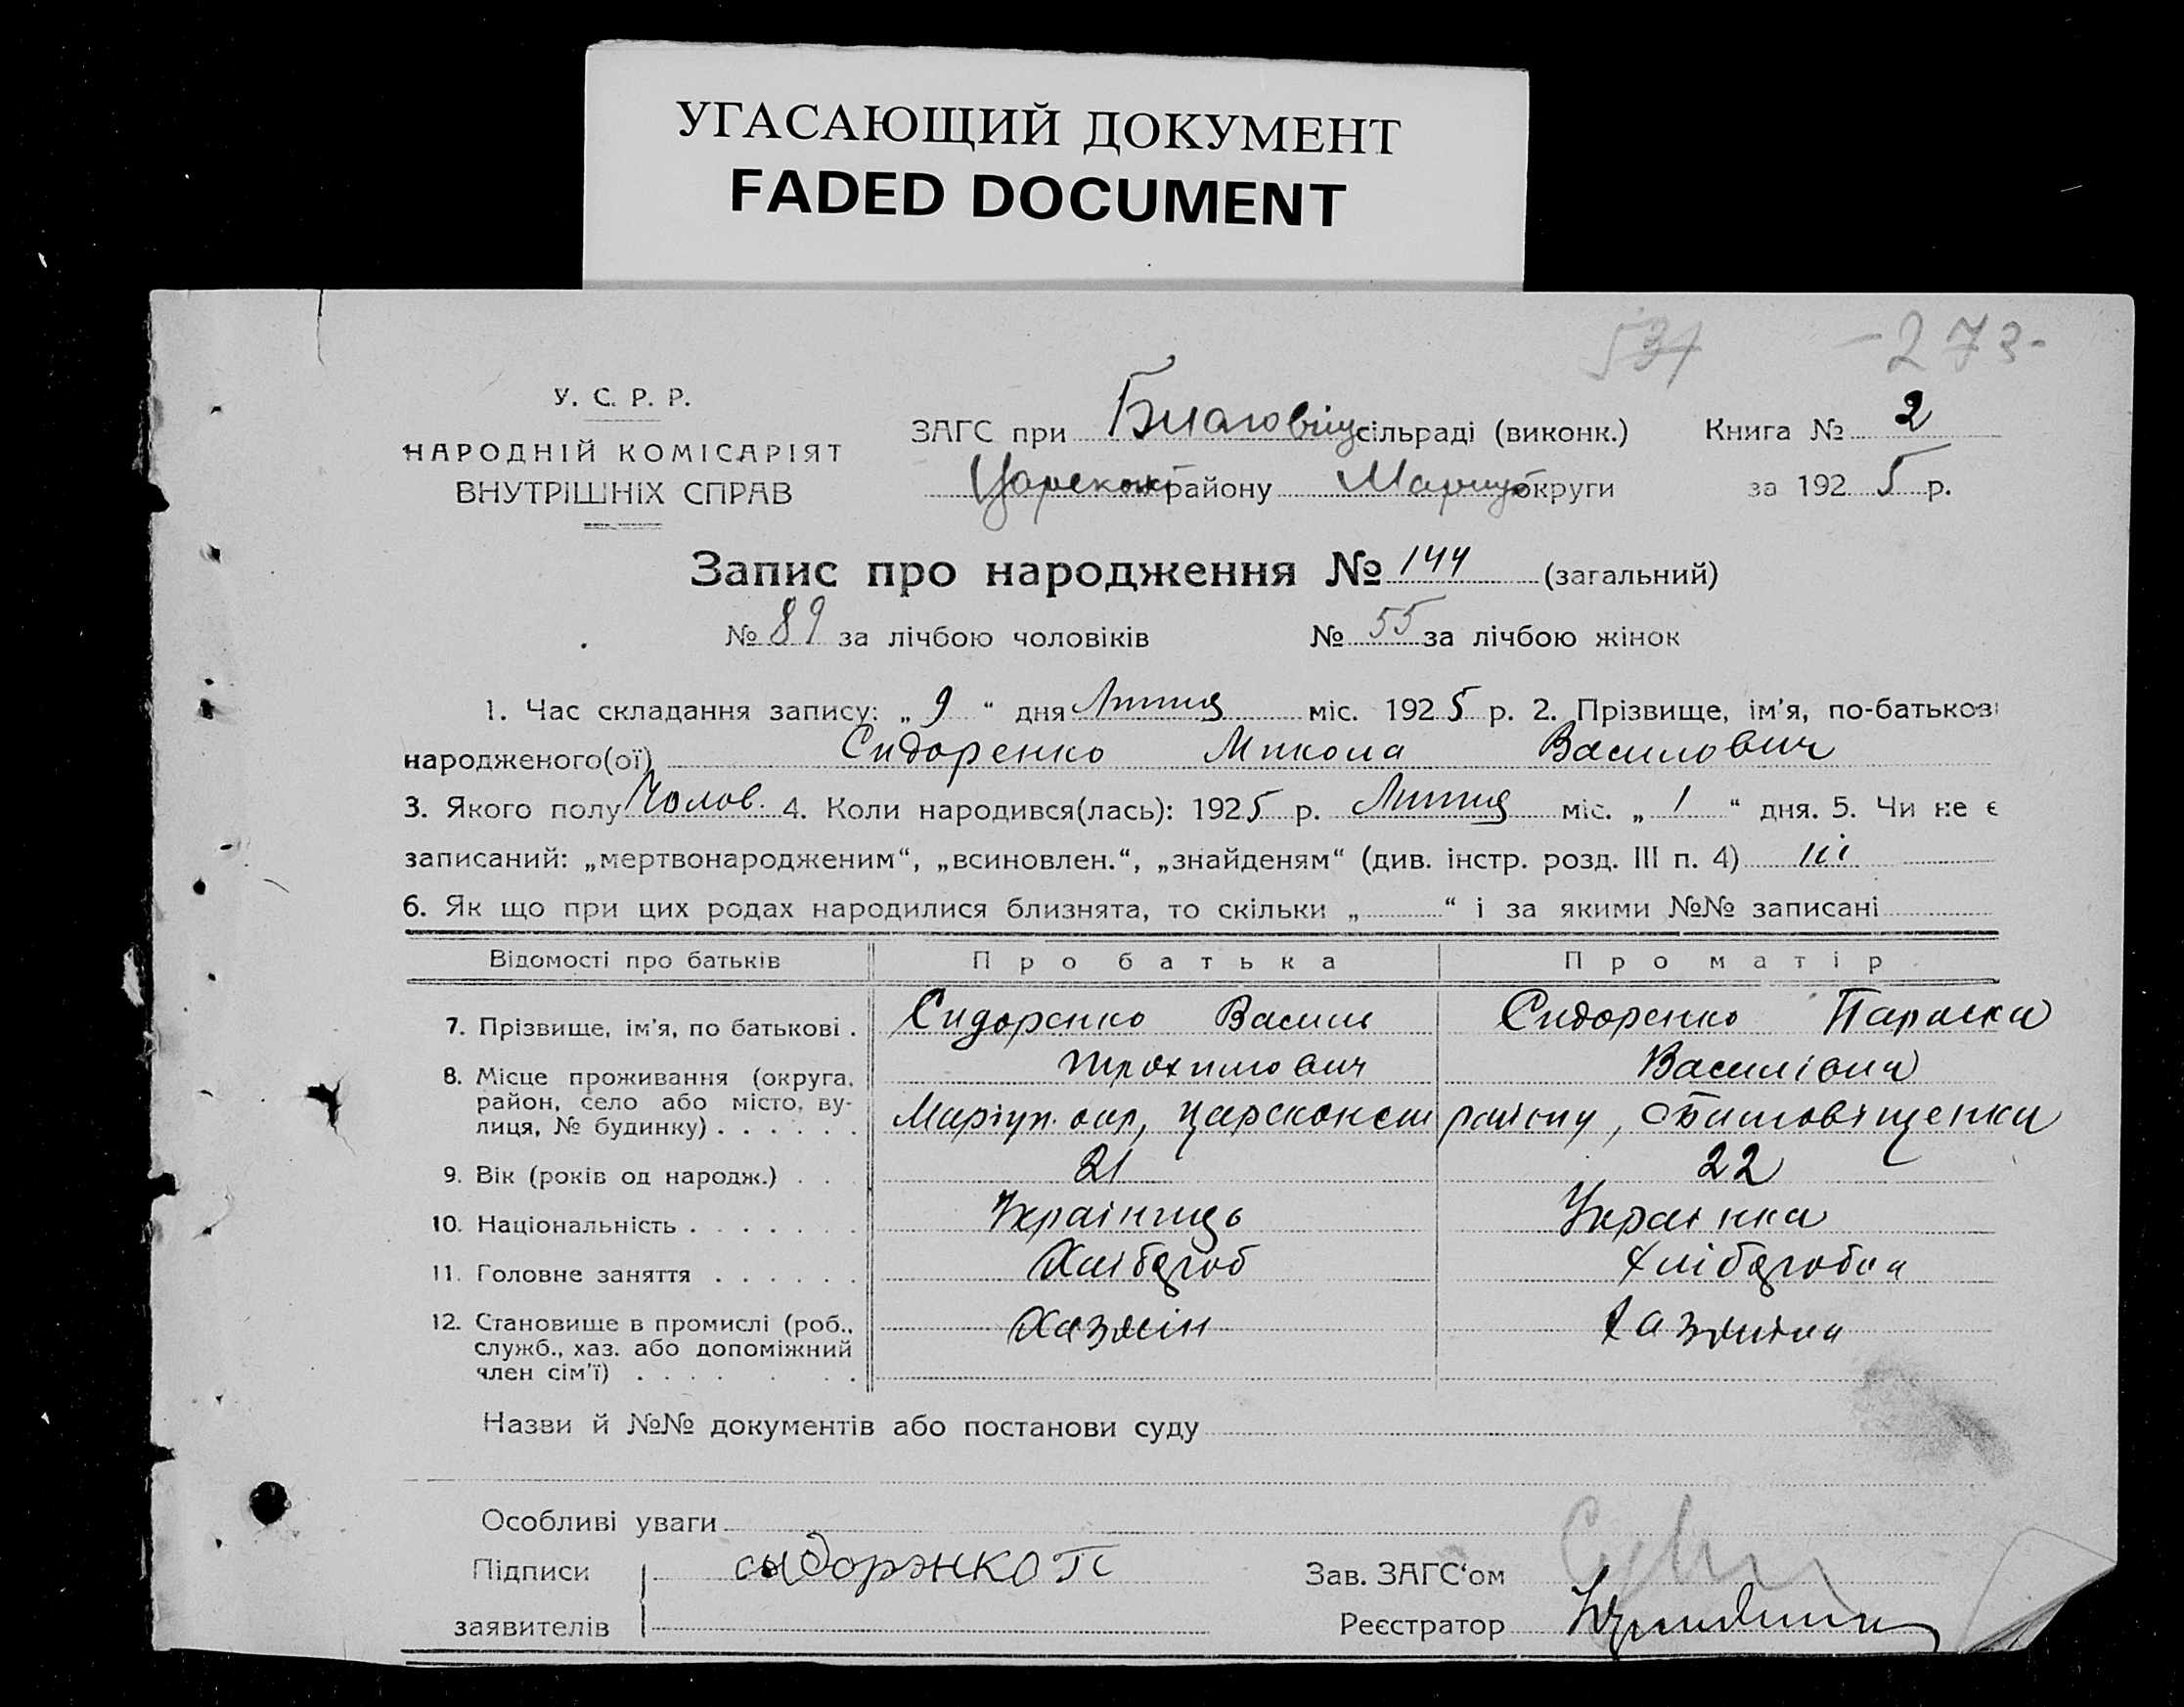 УГАСАЮЩИЙ ДОКУМЕНТ
FADED DOCUMENT
531 -273-
У. С. Р. Р.
НАРОДНІЙ КОМІСАРІЯТ
ВНУТРІШНІХ СПРАВ
ЗАГС при Благовіщ сільраді (виконк.) Книга № 2
Царекон району Маріуп округи за 1925 р.
Запис про народження № 144 (загальний)
№ 89 за лічбою чоловіків № 55 за лічбою жінок
1. Час складання запису: „ 9 “ дня Липня міс. 1925 р. 2. Прізвище, ім'я, по-батькові
народженого(ої) Сидоренко Микола Василович
3. Якого полу Чолов. 4. Коли народився(лась): 1925 р. Липня міс. „ 1 “ дня. 5. Чи не є
записаний: „мертвонародженим“, „всиновлен.“, „знайденям“ (див. інстр. розд. III п. 4) ні
6. Як що при цих родах народилися близнята, то скільки „ “ і за якими №№ записані
Відомості про батьків Про батька Про матір
7. Прізвище, ім'я, по батькові . Сидоренко Василь Сидоренко Параска
Трохимович Василівна
8. Місце проживання (округа,
район, село або місто, ву-
лиця, № будинку) . . . . . . Маріуп. окр, Царсконст району, с Благовіщенка
9. Вік (років од народж.) . . 21 22
10. Національність . . . . . . . Українець Українка
11. Головне заняття . . . . . . Хлібороб Хліборобка
12. Становище в промислі (роб., Хазяїн Хазяйка
служб., хаз. або допоміжний
член сім'ї) . . . . . . .
Назви й №№ документів або постанови суду
Особливі уваги
Підписи сыдорэнко П
заявителів
Зав. ЗАГС'ом
Реєстратор